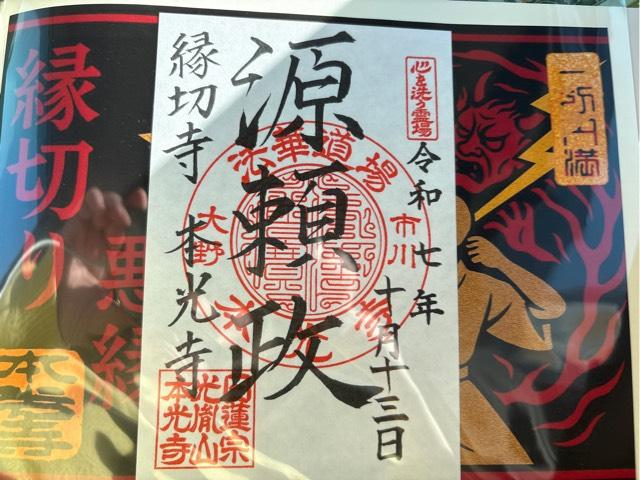 心を洗う霊場
令和七年
十月十三日
源頼政
縁切寺 本光寺
法華道場
市川
大野
本光寺
日蓮宗
光胤山
本光寺
縁切り
悪縁
本光寺